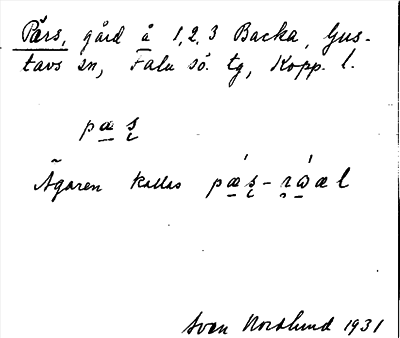 Pärs, gård å 1,2,3 Backa, Gus-
tavs sn, Falu sö. tg, Kopp. l.
pæʂ
Ägaren kallas pǽʂ-
Sven Nordlund 1931